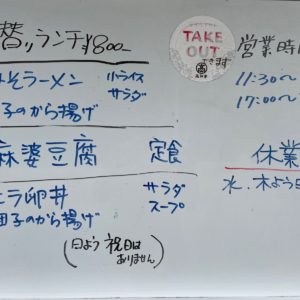 替りランチ¥800-
みそラーメン 小ライス
サラダ
団子のから揚げ
麻婆豆腐 定食
ニラ卵丼 サラダ
スープ
団子のから揚げ
(日よう 祝日は
ありません)
TAKE
OUT
できます
営業時
11:30～
17:00～
休業
水.木よう日